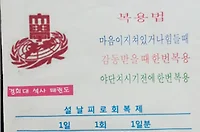 복용법
마음이지쳐있거나힘들때
감동받을때한번복용
야단치시기전에한번복용
경희대 석사 태권도
설날피로회복제
1일 1회 1일분